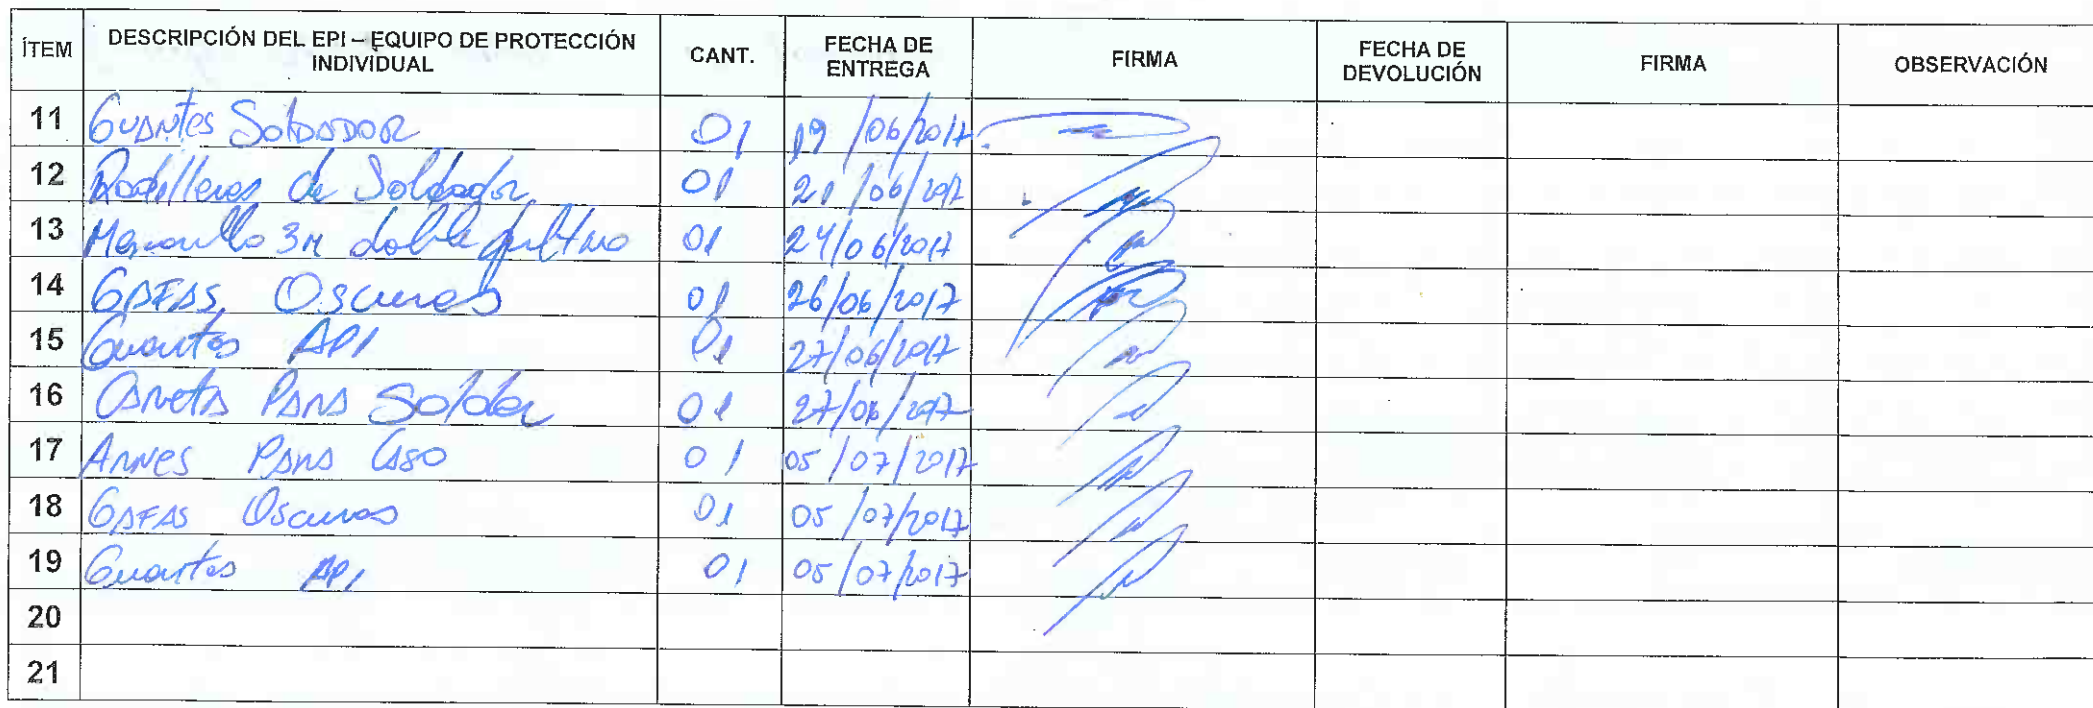 ÍTEM DESCRIPCIÓN DEL EPI – EQUIPO DE PROTECCIÓN INDIVIDUAL CANT. FECHA DE ENTREGA FIRMA FECHA DE DEVOLUCIÓN FIRMA OBSERVACIÓN
11 Guantes Soldador 01 19/06/2017
12 Rodilleras de Soldador 01 21/06/2017
13 3M doble 01 24/06/2017
14 GAFAS Oscuras 01 26/06/2017
15 Guantes API 01 27/06/2017
16 Careta Para Soldar 01 27/06/2017
17 Arnes Para 01 05/07/2017
18 GAFAS Oscuras 01 05/07/2017
19 Guantes API 01 05/07/2017
20
21